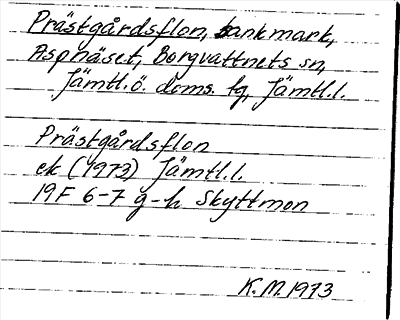 Prästgårdsflon, sankmark,
Asphäset, Borgvattnets sn,
Jämtl.ö. doms. tg, Jämtl.l.
Prästgårdsflon
ek (1973) Jämtl.l.
19F 6-7 g-h Skyttmon
K.M. 1973